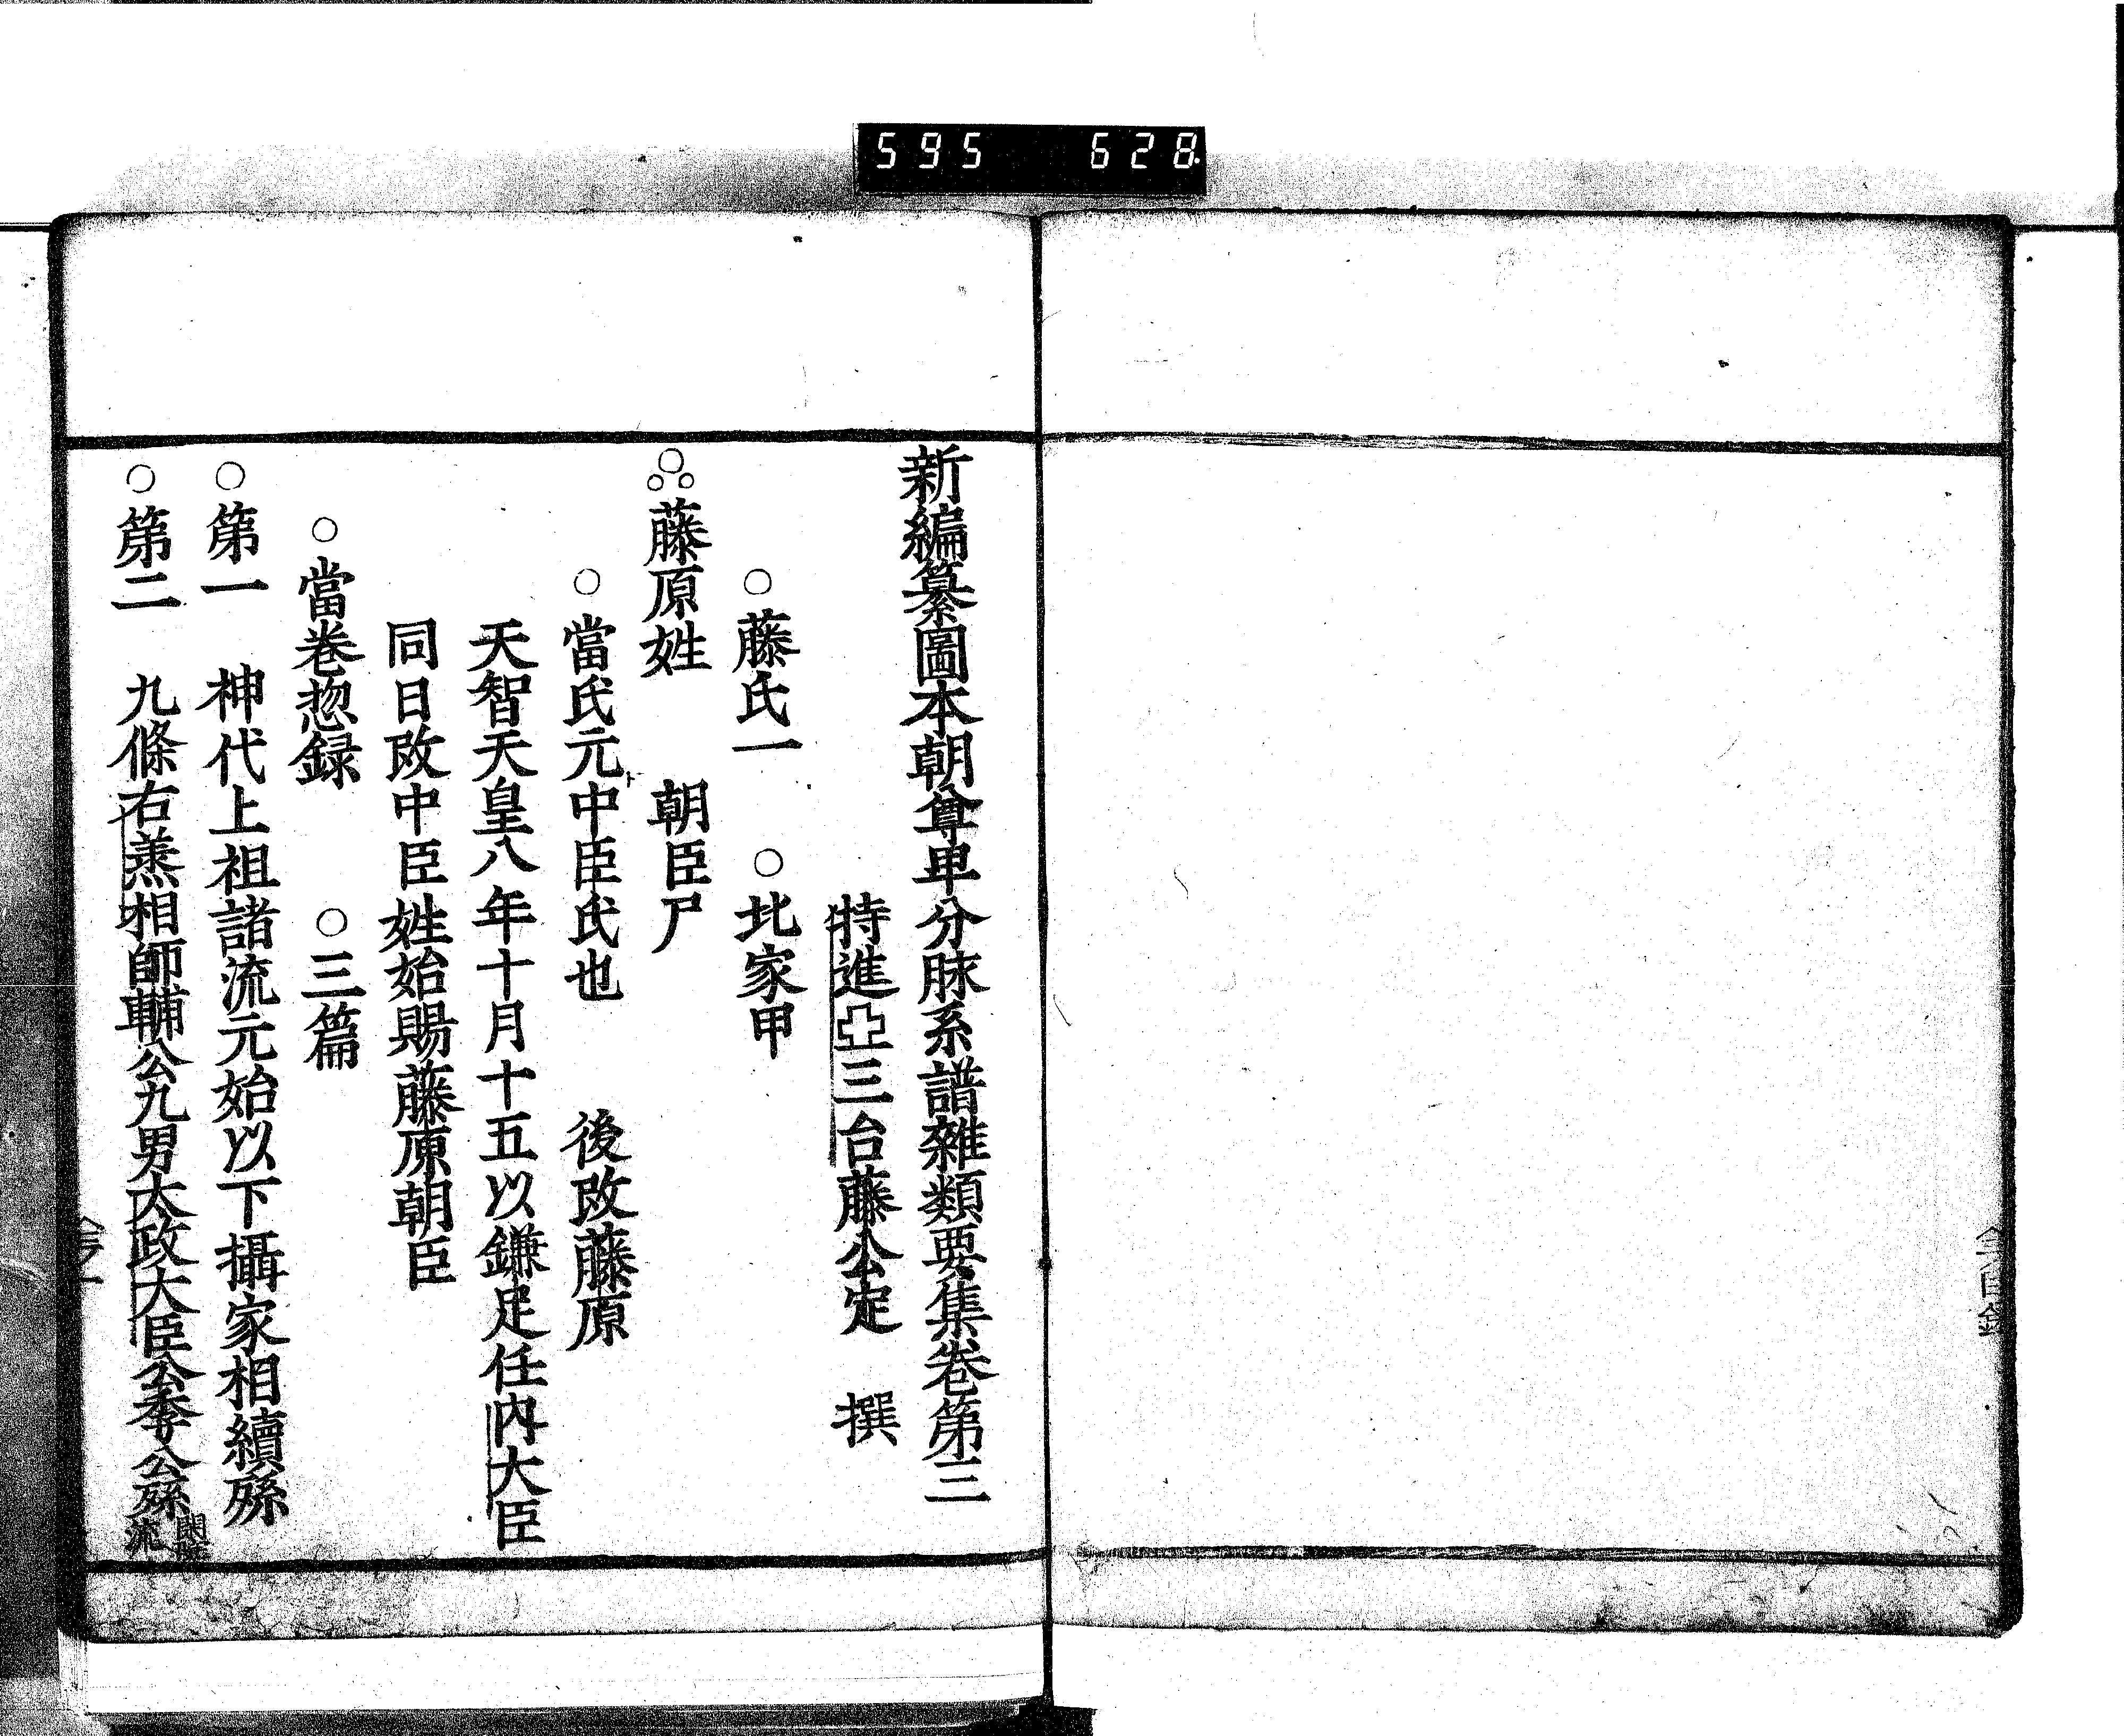 595 628
新編纂圖本朝尊卑分脉系譜雜類要集卷第三
特進亞三台藤公定 撰
○藤氏一 ○北家甲
藤原姓 朝臣尸
○當氏元中臣氏也 後改藤原
天智天皇八年十月十五以鎌足任內大臣
同日改中臣姓始賜藤原朝臣
○當卷惣録 ○三篇
○第一 神代上祖諸流元始以下攝家相續孫
○第二 九條右蒸相師輔公九男太政大臣公季公孫
閑院流